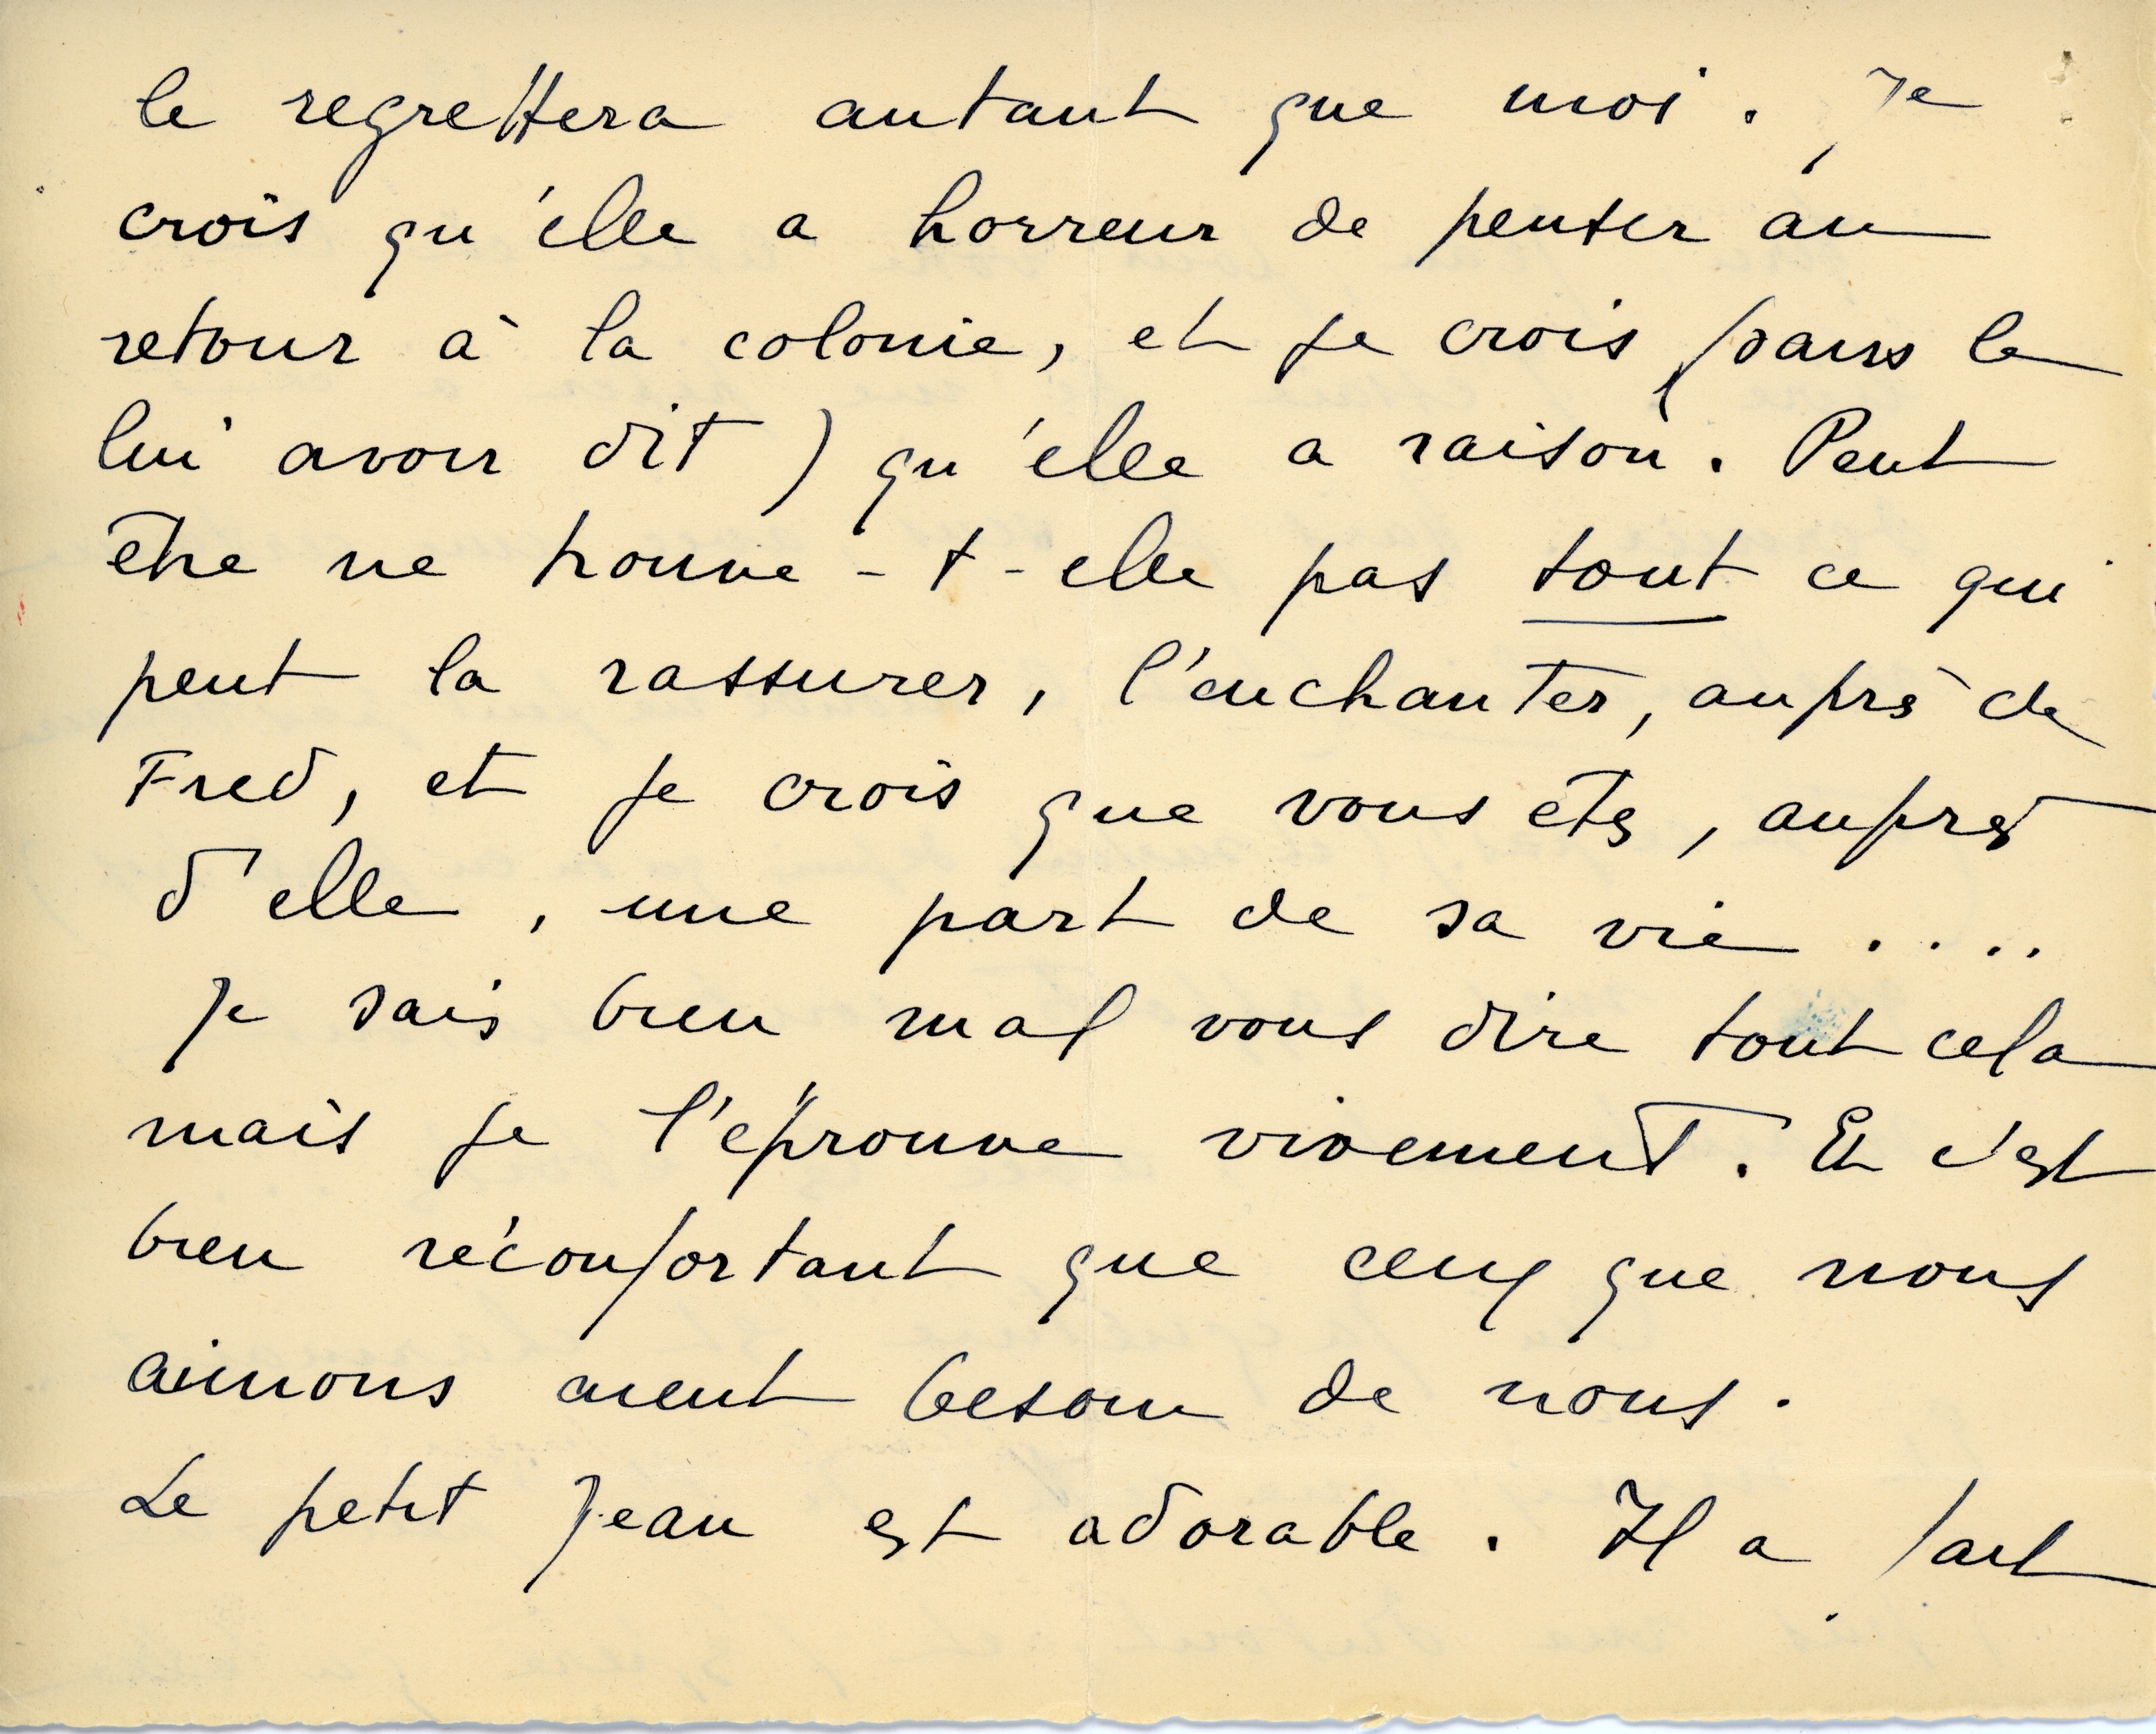 le regrettera autant que moi. Je
crois qu'elle a horreur de penser au
retour à la colonie, et je crois (sans le
lui avoir dit) qu'elle a raison. Peut
être ne trouve-t-elle pas tout ce qui
peut la rassurer, l'enchanter, auprès de
Fred, et je crois que vous êtes, auprès
d'elle, une part de sa vie....
Je sais bien mal vous dire tout cela
mais je l'éprouve vivement. Et c'est
bien réconfortant que ceux que nous
aimons aient besoin de nous.
Le petit Jean est adorable. Il a fait